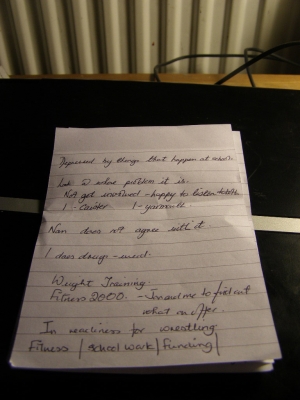 Depressed by things that happen at school.
Look 2 solve problem it is.
Not get involved - happy to listen
1 - 1 -
Nan does not agree with it.
1 does drugs - weed.
Weight Training
Fitness 2000. - Jan and me to find out
what on offer.
In readiness for wrestling
Fitness / school work / Funding /